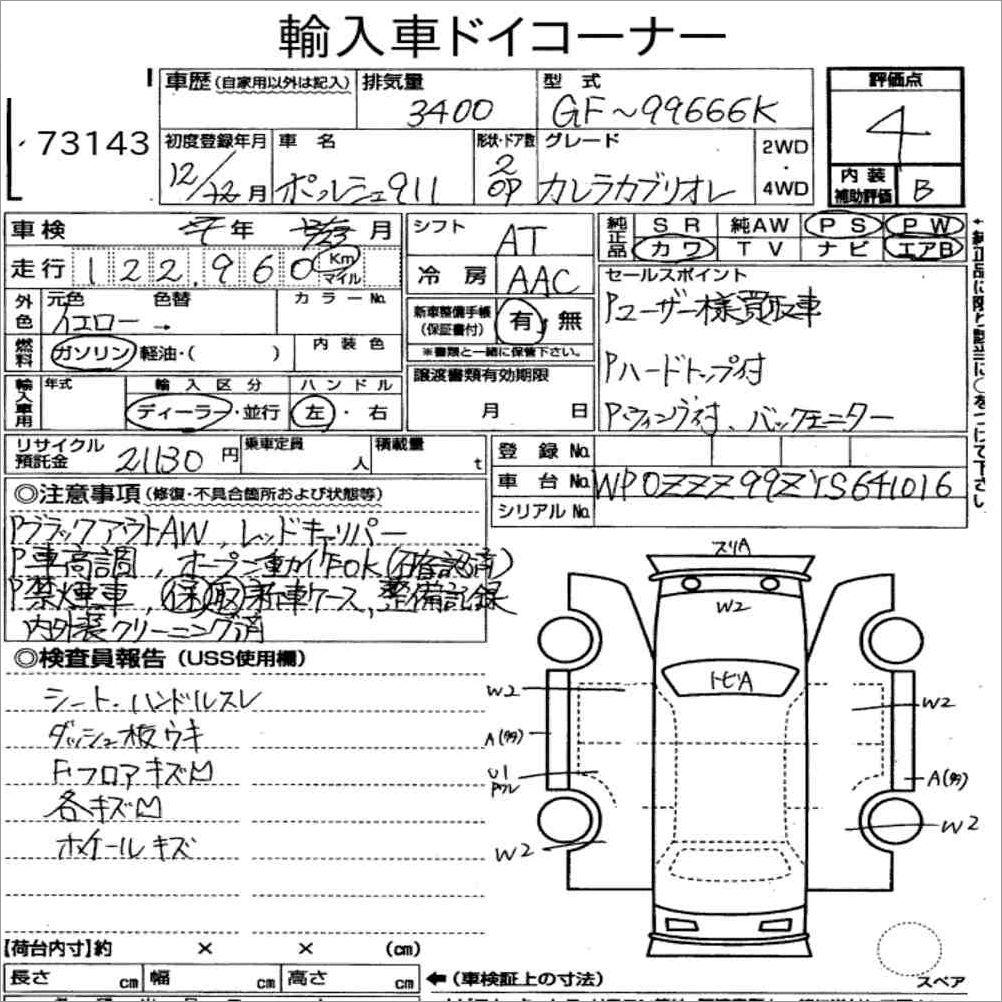 輸入車ドイコーナー
73143
車歴(自家用以外は記入) 排気量 3400 型式 GF~99666K
評価点 4
初度登録年月 12/12月 車名 ポルシェ911 形状・ドア数 2 OP グレード カレラカブリオレ 2WD・4WD
内装補助評価 B
車検 年 月
走行 122,960 Km マイル
シフト AT
冷房 AAC
純正品 SR 純AW PS PW
カワ TV ナビ エアB
外色 元色 イエロー 色替 → カラーNo.
燃料 ガソリン 軽油・( ) 内装色
新車整備手帳(保証書付) 有・無
※書類と一緒に保管下さい。
セールスポイント
Pユーザー様買取車
Pハードトップ付
Pウィング付、バックモニター
輸入車用 年式 輸入区分 ディーラー・並行 ハンドル 左・右
譲渡書類有効期限
月 日
リサイクル預託金 21130円 乗車定員 人 積載量 t
登録No.
車台No. WP0ZZZ99ZYS641016
シリアルNo.
◎注意事項(修復・不具合箇所および状態等)
PブラックアウトAW、レッドキャリパー
P車高調、オープン動作OK(確認済)
P禁煙車、保取新車ケース、整備記録
内外装クリーニング済
◎検査員報告(USS使用欄)
シート・ハンドルスレ
ダッシュ板ウキ
Fフロアキズ凹
各キズ凹
ホイールキズ
スリA
W2
トビA
W2
W2
A(多)
U1
A(多)
W2
W2
スペア
【荷台内寸】約 × × (cm)
長さ cm 幅 cm 高さ cm ←(車検証上の寸法)